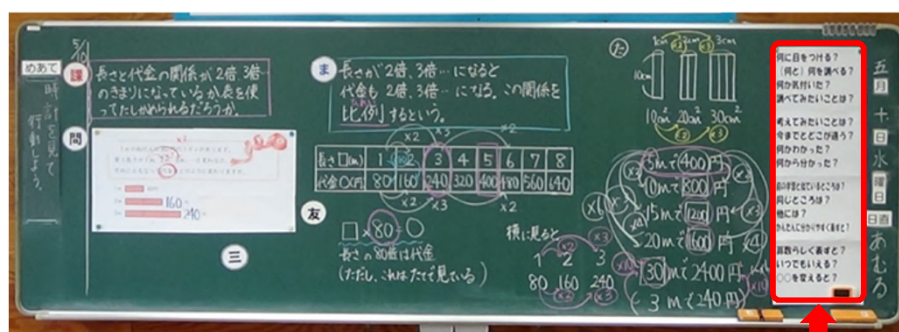 5/10
めあて
時計を見て
行動しよう。
課
長さと代金の関係が2倍、3倍…
のきまりになっているか表を使
ってたしかめられるだろうか。
問
160
240
三
ま
長さが2倍、3倍…になると
代金も2倍、3倍…になる。この関係を
比例するという。
×2
×3
×2
長さ□(m) 1 2 3 4 5 6 7 8
代金○(円) 80 160 240 320 400 480 560 640
×2
×3
×2
友
□×80=○
長さの80倍は代金
(ただし、これはたてで見ている)
横に見ると
×2
×3
1 2 3
80 160 240
×2
×3
た
1cm 2cm 3cm
×2
×3
10cm
10cm² 20cm² 30cm²
×2
×3
5mで400円
10mで800円
15mで1200円
20mで1600円
30mで2400円
(3mで240円)
×10
何に目をつける?
(何と)何を調べる?
何か気付いた?
調べてみたいことは?
考えてみたいことは?
今までとどこが違う?
何かわかった?
何から分かった?
同じところは?
他には?
かんたんに分かりやすく表すと?
算数らしく表すと?
いつでもいえる?
○○を変えると?
五
月
十
日
水
曜
日
日直
あむろ